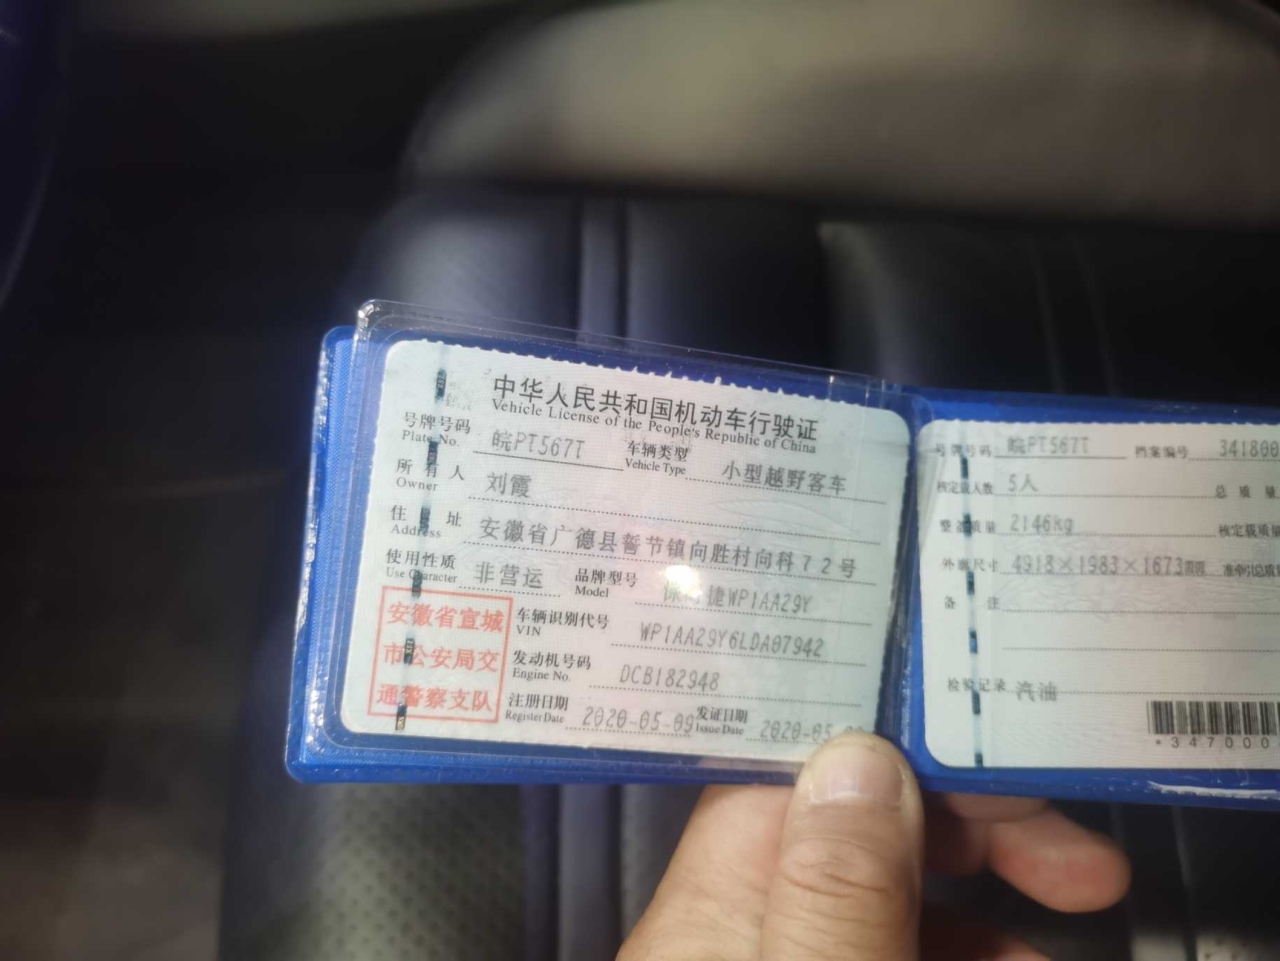 中华人民共和国机动车行驶证
Vehicle License of the People's Republic of China
号牌号码 皖PT567T 车辆类型 小型越野客车
Plate No. Vehicle Type
所有人 刘霞
Owner
住址 安徽省广德县誓节镇向胜村向科72号
Address
使用性质 非营运 品牌型号 捷WP1AA29Y
Use Character Model
安徽省宣城
市公安局交
通警察支队
车辆识别代号 WP1AA29Y6LDA07942
VIN
发动机号码 DCB182948
Engine No.
注册日期 2020-05-09 发证日期 2020-05
Register Date Issue Date
号牌号码 皖PT567T 档案编号 341800
核定载人数 5人 总质量
整备质量 2146kg 核定载质量
外廓尺寸 4918×1983×1673mm 准牵引总质
备注
检验记录 汽油
*347000